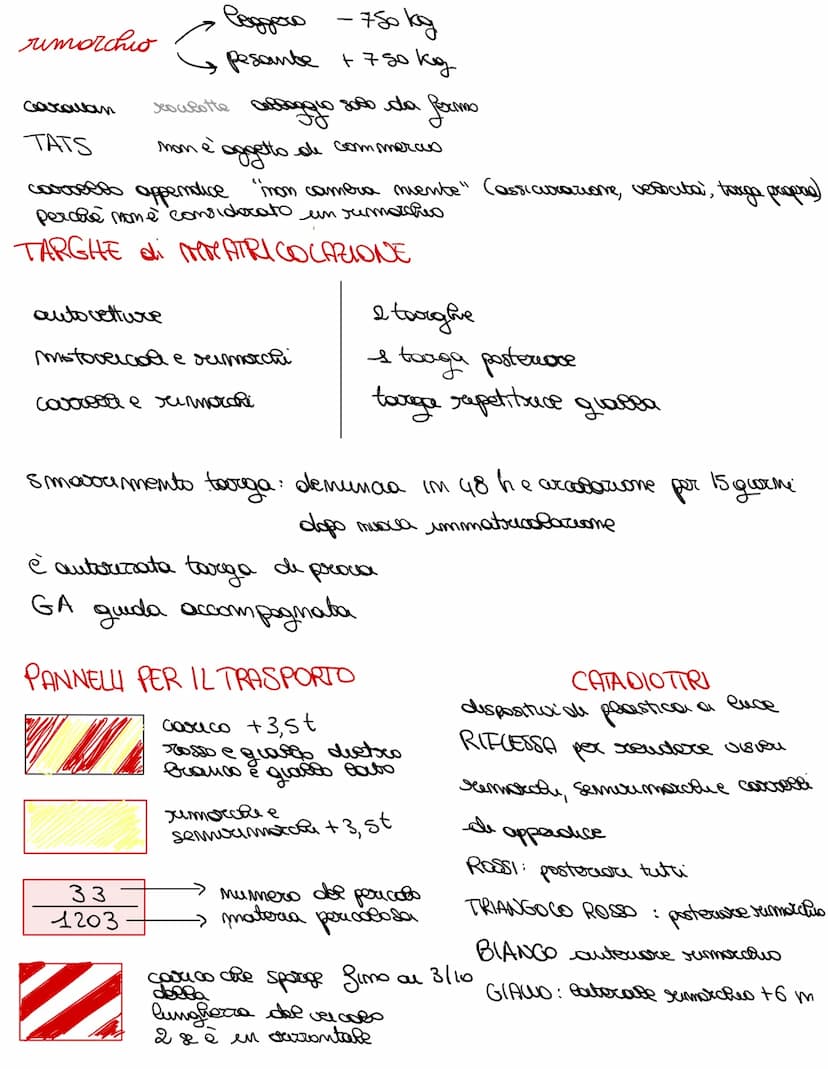 rimorchio
leggero - 750 kg
pesante + 750 kg
caravan roulotte alloggio solo da fermo
TATS non è oggetto di commercio
carrello appendice "non cambia niente" (assicurazione, velocità, targa propria)
perché non è considerato un rimorchio
TARGHE di IMMATRICOLAZIONE
autovetture 2 targhe
motoveicoli e rimorchi 1 targa posteriore
carrelli e rimorchi targa ripetitrice gialla
smarrimento targa: denuncia in 48 h e circolazione per 15 giorni
dopo nuova immatricolazione
è autorizzata targa di prova
GA guida accompagnata
PANNELLI PER IL TRASPORTO
carico +3,5t
rosso e giallo dietro
bianco e giallo lato
rimorchi e
semirimorchi +3,5t
33 numero del pericolo
1203 materia pericolosa
carico che sporge fino ai 3/10
della
lunghezza del veicolo
2 se è in orizzontale
CATADIOTTRI
dispositivi di plastica a luce
RIFLESSA per rendere visibili
rimorchi, semirimorchi e carrelli
di appendice
ROSSI: posteriori tutti
TRIANGOLO ROSSO : posteriore rimorchio
BIANCO anteriore rimorchio
GIALLO: laterale rimorchio +6 m